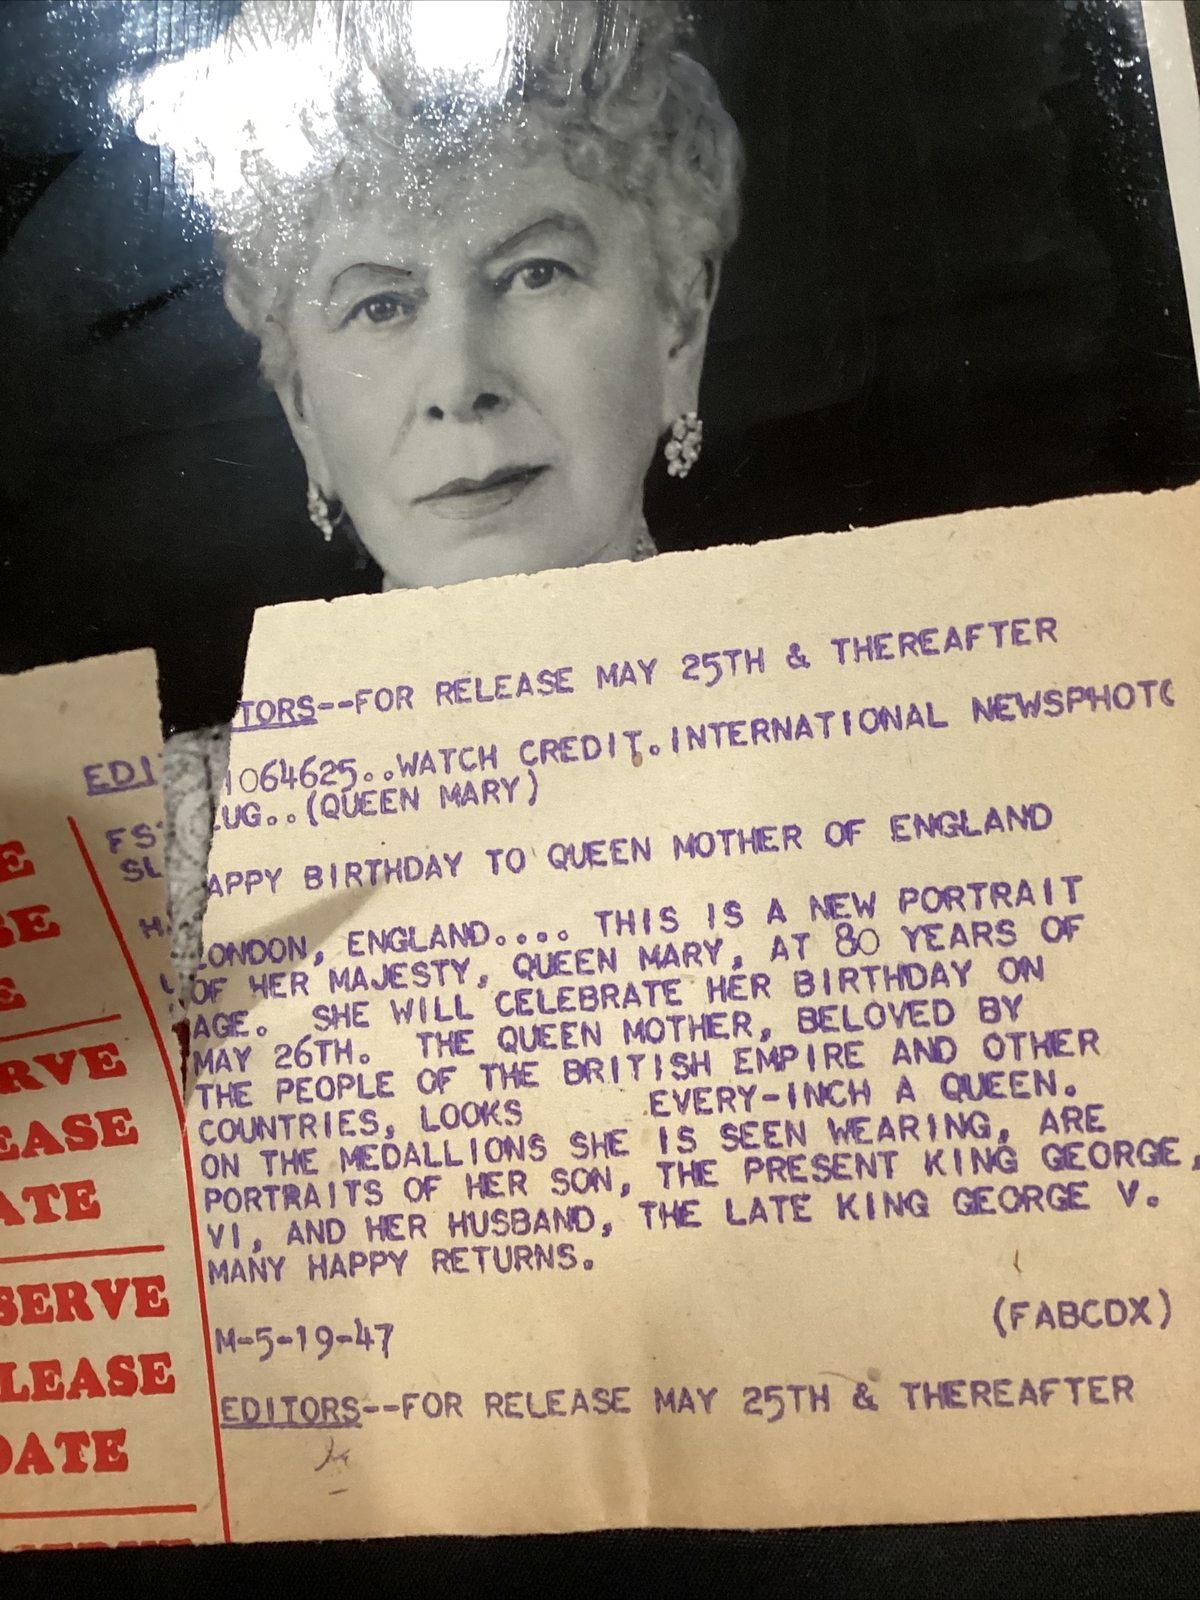 EDITORS--FOR RELEASE MAY 25TH & THEREAFTER
1064625..WATCH CREDIT.INTERNATIONAL NEWSPHOTO
SLUG..(QUEEN MARY)
HAPPY BIRTHDAY TO QUEEN MOTHER OF ENGLAND
LONDON, ENGLAND.... THIS IS A NEW PORTRAIT
OF HER MAJESTY, QUEEN MARY, AT 80 YEARS OF
AGE. SHE WILL CELEBRATE HER BIRTHDAY ON
MAY 26TH. THE QUEEN MOTHER, BELOVED BY
THE PEOPLE OF THE BRITISH EMPIRE AND OTHER
COUNTRIES, LOOKS EVERY-INCH A QUEEN.
ON THE MEDALLIONS SHE IS SEEN WEARING, ARE
PORTRAITS OF HER SON, THE PRESENT KING GEORGE,
VI, AND HER HUSBAND, THE LATE KING GEORGE V.
MANY HAPPY RETURNS.
(FABCDX)
M-5-19-47
EDITORS--FOR RELEASE MAY 25TH & THEREAFTER
RVE
EASE
ATE
SERVE
LEASE
DATE